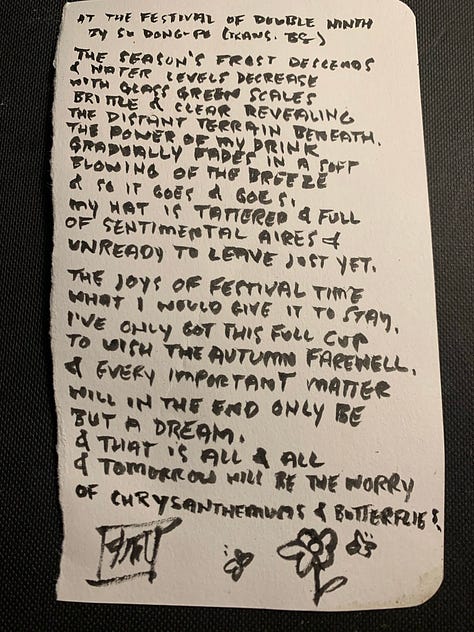 AT THE FESTIVAL OF DOUBLE NINTH
BY SU DONG-PO (TRANS. BS)
THE SEASON'S FROST DESCENDS
& WATER LEVELS DECREASE
WITH GLASS GREEN SCALES
BRITTLE & CLEAR REVEALING
THE DISTANT TERRAIN BENEATH.
THE POWER OF MY DRINK
GRADUALLY FADES IN A SOFT
BLOWING OF THE BREEZE
& SO IT GOES & GOES.
MY HAT IS TATTERED & FULL
OF SENTIMENTAL AIRES &
UNREADY TO LEAVE JUST YET.
THE JOYS OF FESTIVAL TIME
WHAT I WOULD GIVE IT TO STAY.
I'VE ONLY GOT THIS FULL CUP
TO WISH THE AUTUMN FAREWELL.
& EVERY IMPORTANT MATTER
WILL IN THE END ONLY BE
BUT A DREAM.
& THAT IS ALL & ALL
& TOMORROW WILL BE THE WORRY
OF CHRYSANTHEMUMS & BUTTERFLIES.